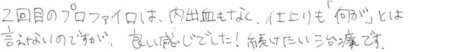 2回目のプロファイロは、内出血もなく、仕上りも「何が」とは
言えないのですが、良い感じでした！続けたい治療です。